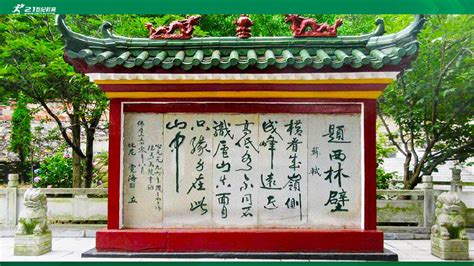 21世纪教育
題西林壁
蘇軾
橫看成嶺側
成峰遠近
高低各不同不
識廬山真面目
只緣身在此
山中